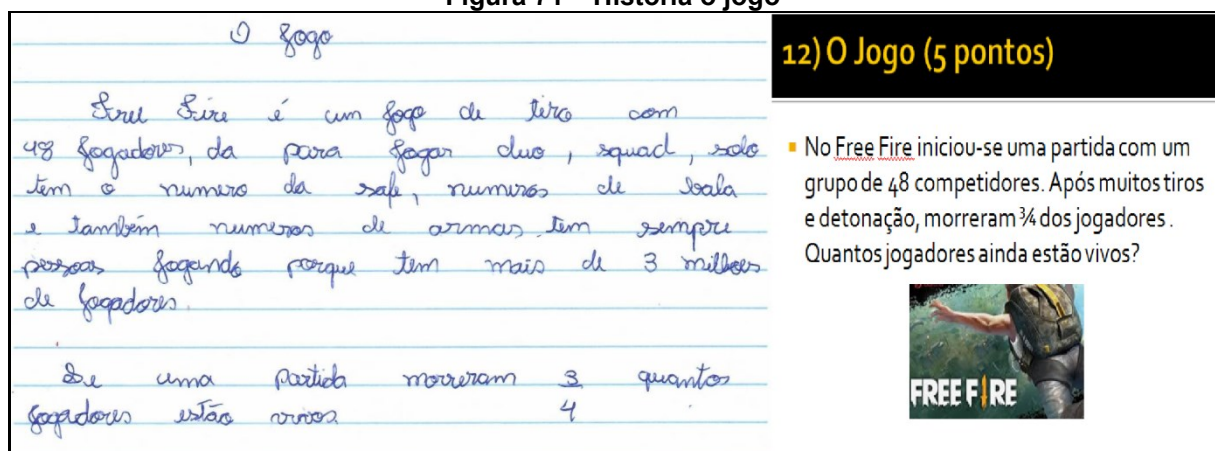 Figura 71 – História o jogo
O jogo
Free Fire é um jogo de tiro com
48 jogadores, da para jogar duo, squad, solo
tem o numero da safe, numeros de bala
e também numeros de armas tem sempre
pessoas jogando porque tem mais de 3 milhoes
de jogadores.
Se uma partida morreram 3 quantos
4
jogadores estão vivos
12) O Jogo (5 pontos)
No Free Fire iniciou-se uma partida com um
grupo de 48 competidores. Após muitos tiros
e detonação, morreram ¾ dos jogadores .
Quantos jogadores ainda estão vivos?
FREE FIRE